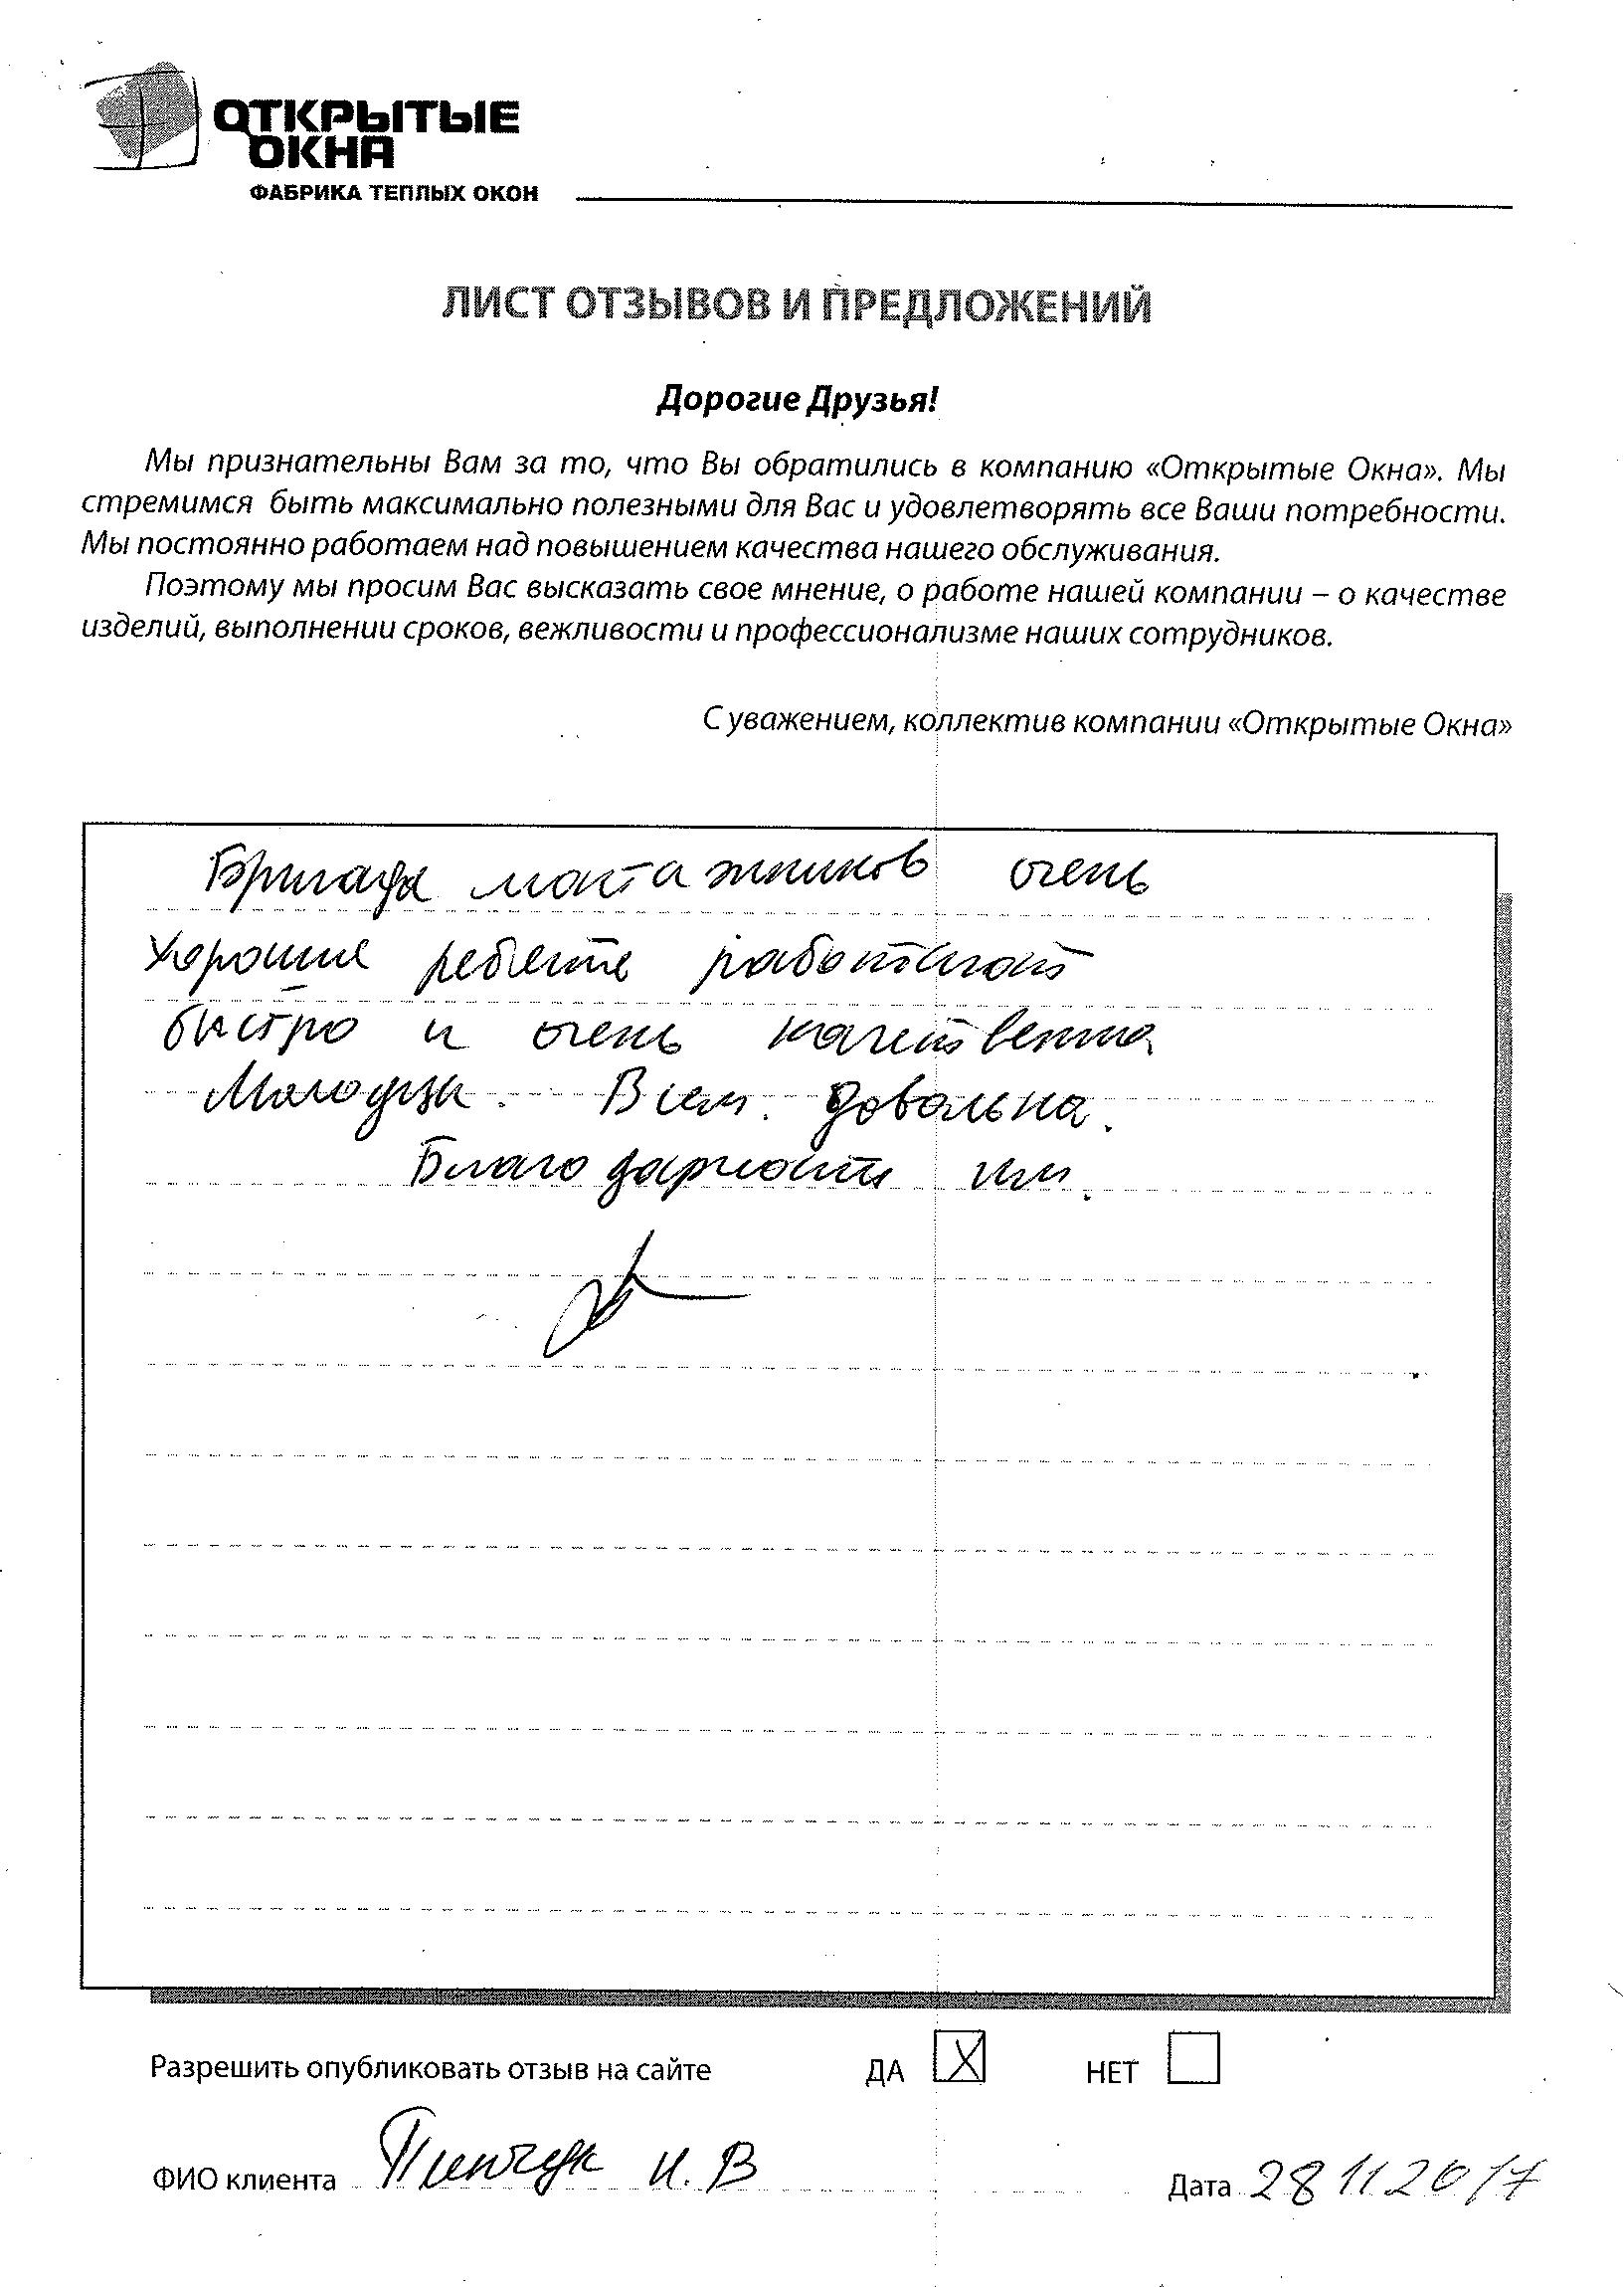 ОТКРЫТЫЕ
ОКНА
ФАБРИКА ТЕПЛЫХ ОКОН
ЛИСТ ОТЗЫВОВ И ПРЕДЛОЖЕНИЙ
Дорогие Друзья!
Мы признательны Вам за то, что Вы обратились в компанию «Открытые Окна». Мы
стремимся быть максимально полезными для Вас и удовлетворять все Ваши потребности.
Мы постоянно работаем над повышением качества нашего обслуживания.
Поэтому мы просим Вас высказать свое мнение, о работе нашей компании – о качестве
изделий, выполнении сроков, вежливости и профессионализме наших сотрудников.
С уважением, коллектив компании «Открытые Окна»
Бригада монтажников очень
хорошие ребята работают
быстро и очень качественно
Молодцы. Всем довольна.
Благодарность им.
Разрешить опубликовать отзыв на сайте ДА X НЕТ
ФИО клиента Пинчук И. В Дата 28 11 2017